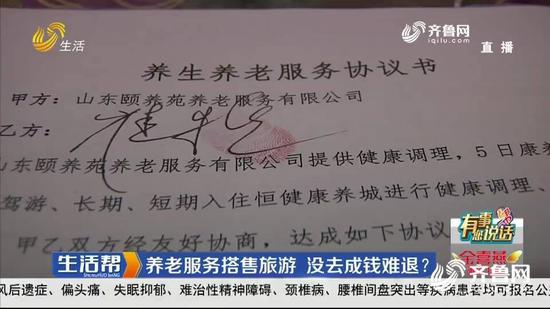 生活
齐鲁网
iqilu.com
直播
养生养老服务协议书
甲方：山东颐养苑养老服务有限公司
乙方：
山东颐养苑养老服务有限公司提供健康调理，5日康养
驾游、长期、短期入住恒健康养城进行健康调理、
甲乙双方经友好协商，达成如下协议
有事您说话
生活帮
养老服务搭售旅游 没去成钱难退？
齐鲁网
风后遗症、偏头痛、失眠抑郁、难治性精神障碍、颈椎病、腰椎间盘突出等疾病患者均可报名公